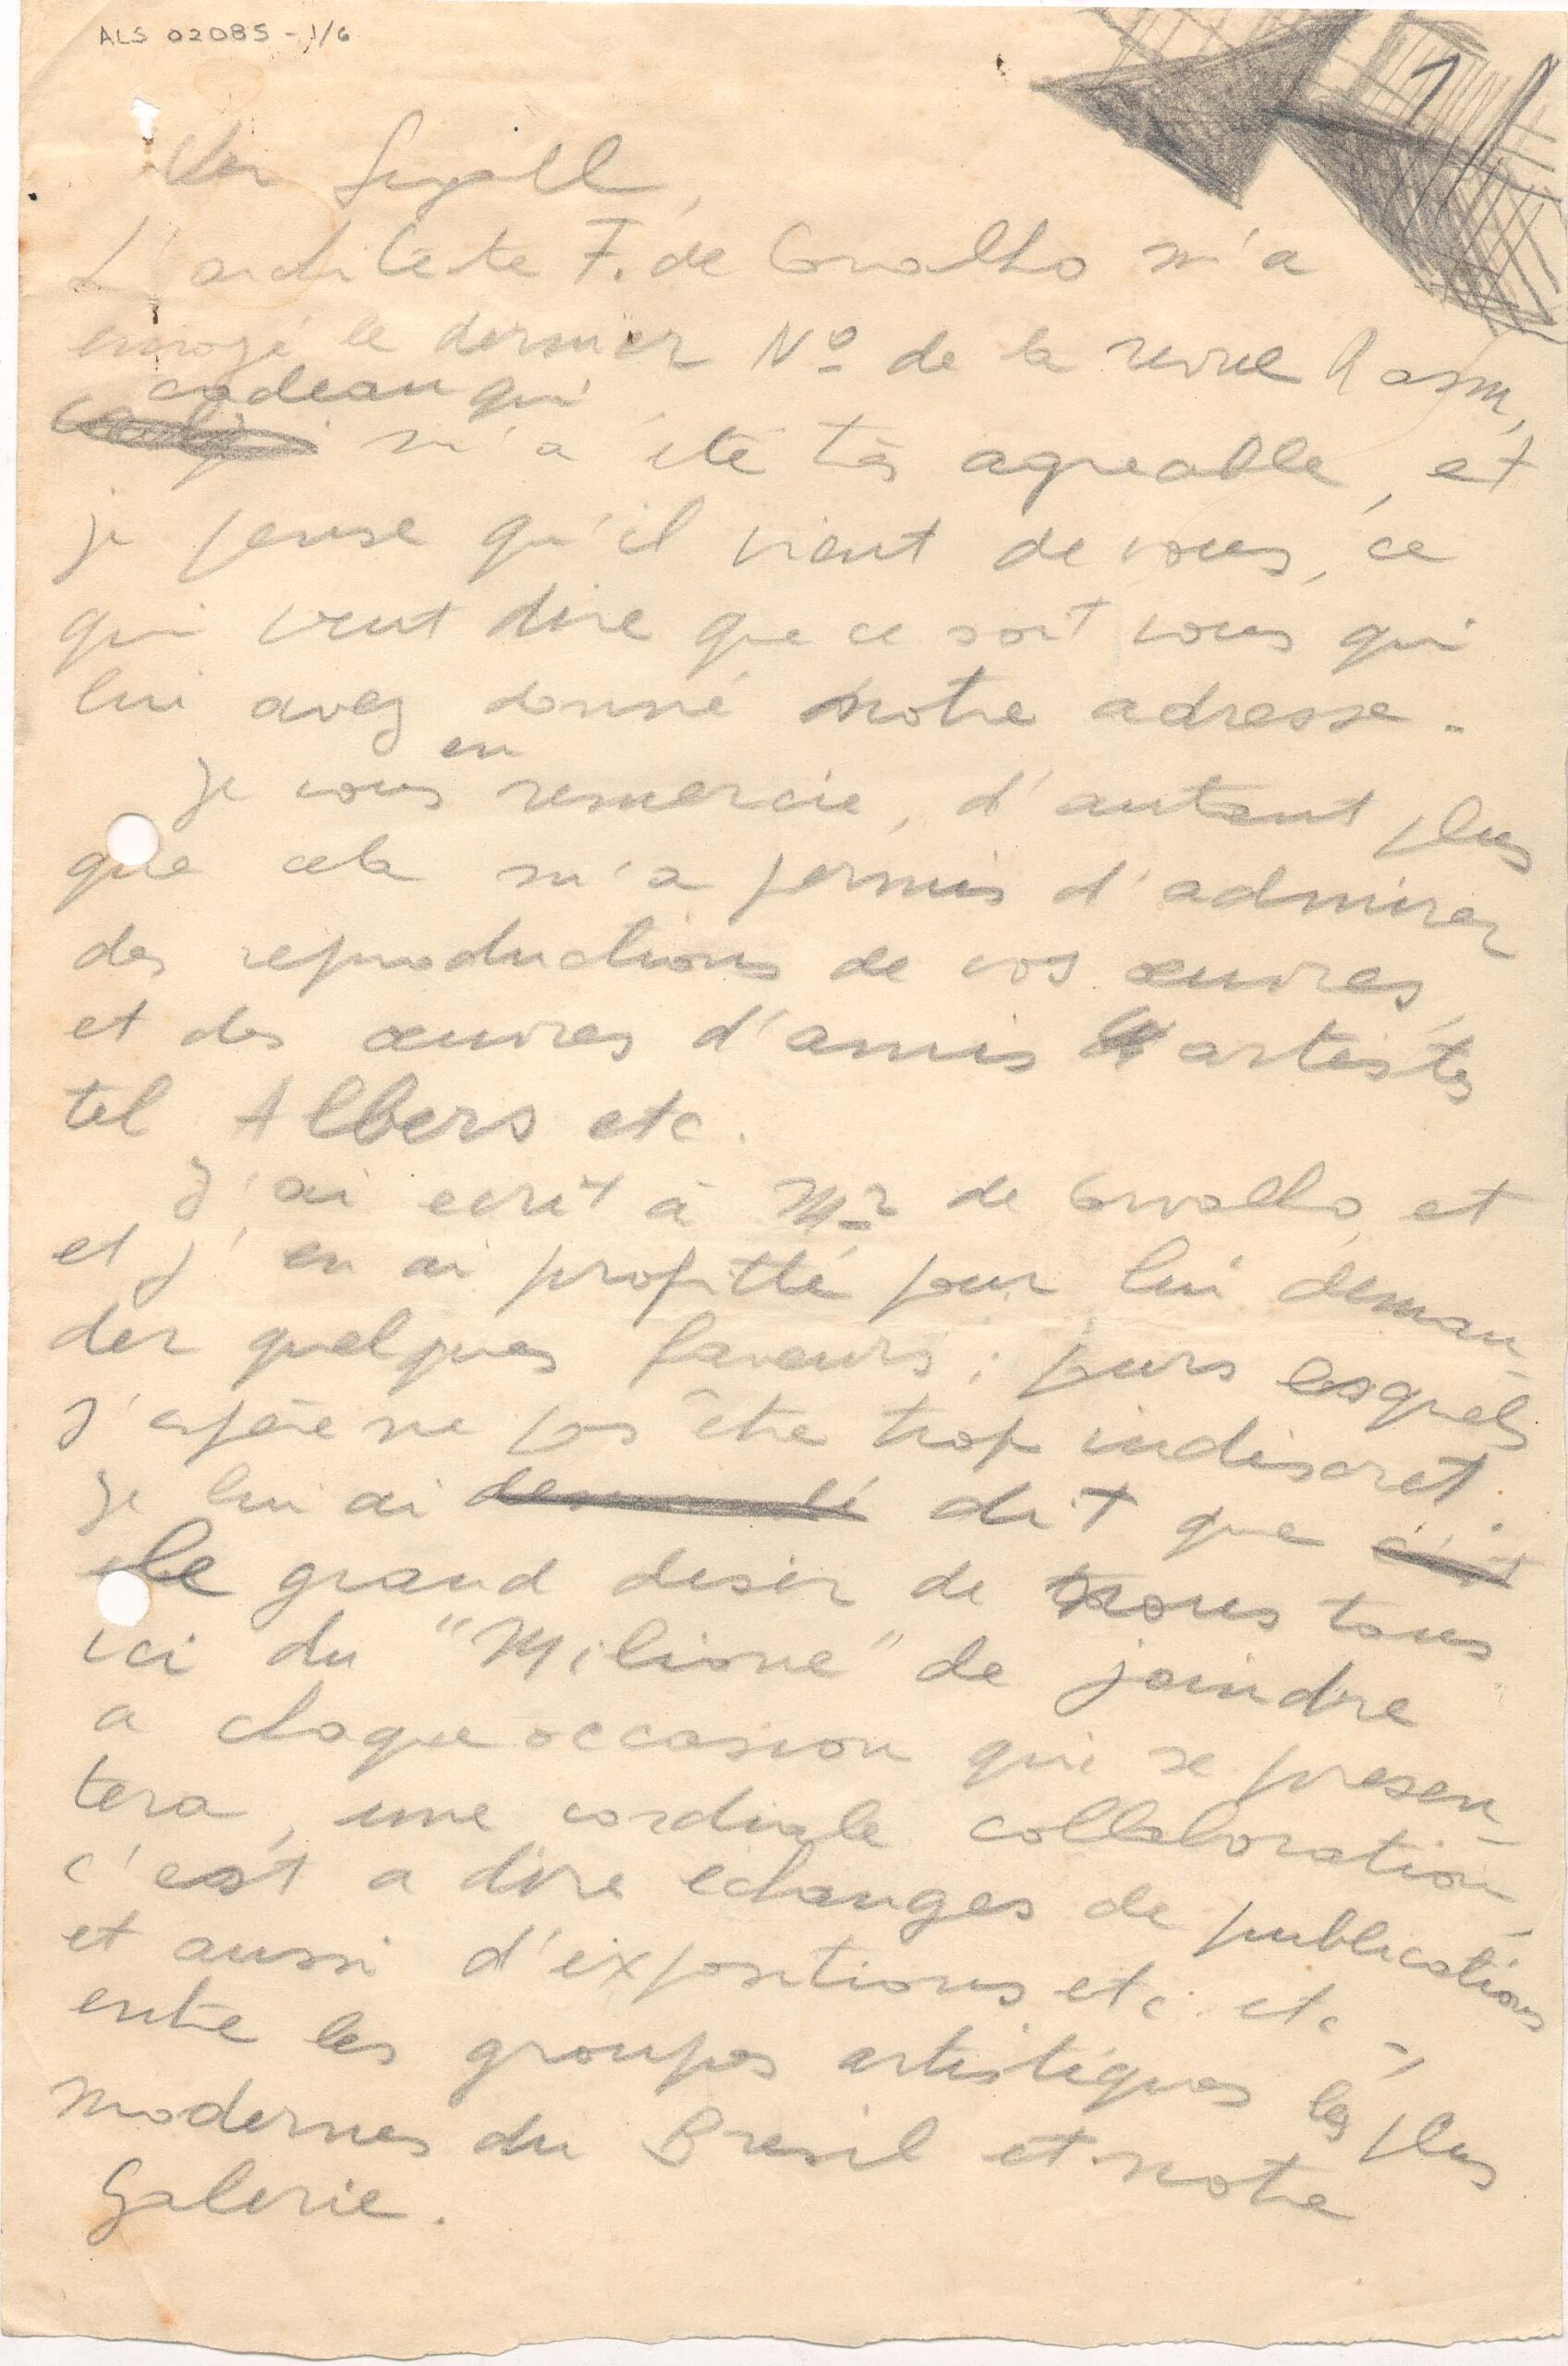 ALS 02085 - 1/6
1
Segall,
L'architecte F. de Carvalho m'a
envoyé le dernier Nº de la revue Rasm,
cadeau qui
m'a été très agreable, et
je pense qu'il vient de vous, ce
qui veut dire que ce soit vous qui
lui avez donné notre adresse.
en
Je vous remercie, d'autant plus
que cela m'a permis d'admirer
des reproductions de vos œuvres,
et des œuvres d'amis artistes
tel Albers etc.
J'ai ecrit à Mr de Carvalho, et
et j'en ai profitté pour lui deman-
der quelques faveurs; purs lesquels
j'espère ne pas être trop indiscret.
Je lui ai demandé dit que c'est
le grand desir de nous tous
ici du "Milione" de joindre
a chaque occasion qui se presen-
tera, une cordiale collaboration,
c'est a dire echanges de publications
et aussi d'expositions etc. etc -,
entre les groupes artistiques les plus
modernes du Bresil et notre
Galerie.